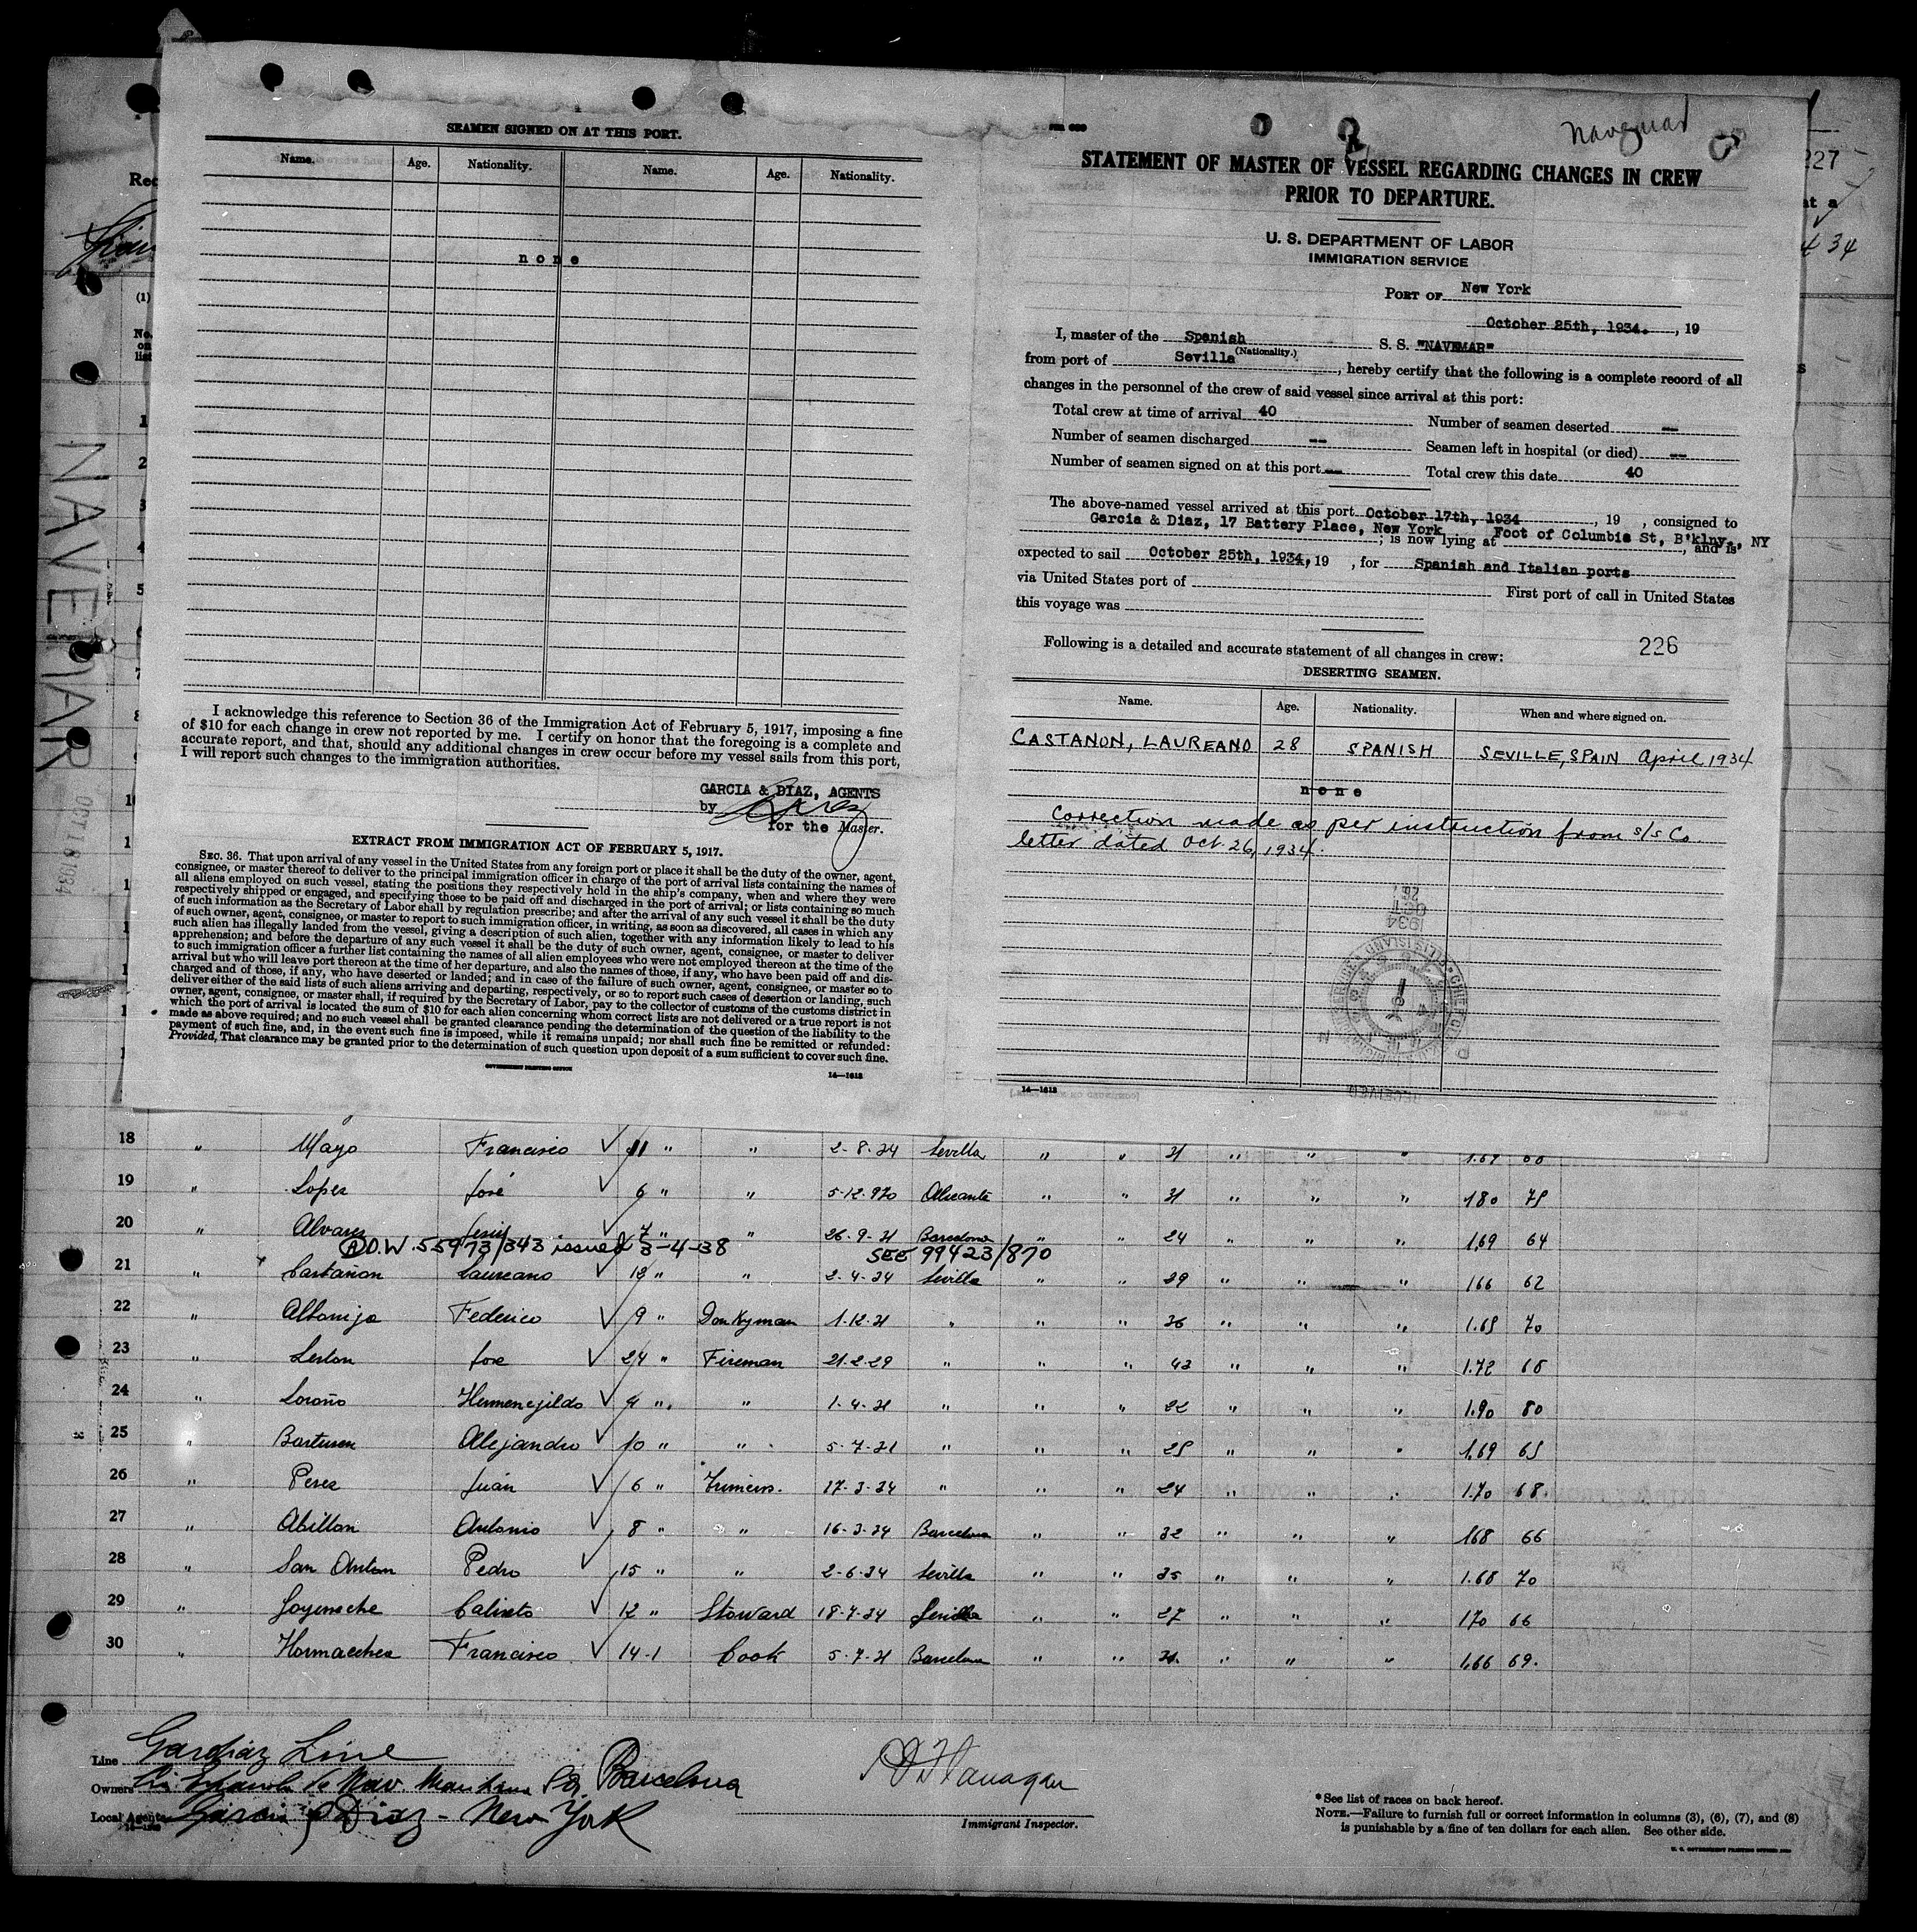 SEAMEN SIGNED ON AT THIS PORT.
Name. Age. Nationality. Name. Age. Nationality.
none
I acknowledge this reference to Section 36 of the Immigration Act of February 5, 1917, imposing a fine
of $10 for each change in crew not reported by me. I certify on honor that the foregoing is a complete and
accurate report, and that, should any additional changes in crew occur before my vessel sails from this port,
I will report such changes to the immigration authorities.
GARCIA & DIAZ, AGENTS
by
for the Master.
EXTRACT FROM IMMIGRATION ACT OF FEBRUARY 5, 1917.
SEC. 36. That upon arrival of any vessel in the United States from any foreign port or place it shall be the duty of the owner, agent,
consignee, or master thereof to deliver to the principal immigration officer in charge of the port of arrival lists containing the names of
all aliens employed on such vessel, stating the positions they respectively hold in the ship's company, when and where they were
respectively shipped or engaged, and specifying those to be paid off and discharged in the port of arrival; or lists containing so much
of such information as the Secretary of Labor shall by regulation prescribe; and after the arrival of any such vessel it shall be the duty
of such owner, agent, consignee, or master to report to such immigration officer, in writing, as soon as discovered, all cases in which any
such alien has illegally landed from the vessel, giving a description of such alien, together with any information likely to lead to his
apprehension; and before the departure of any such vessel it shall be the duty of such owner, agent, consignee, or master to deliver
to such immigration officer a further list containing the names of all alien employees who were not employed thereon at the time of the
arrival but who will leave port thereon at the time of her departure, and also the names of those, if any, who have been paid off and dis-
charged and of those, if any, who have deserted or landed; and in case of the failure of such owner, agent, consignee, or master so to
deliver either of the said lists of such aliens arriving and departing, respectively, or so to report such cases of desertion or landing, such
owner, agent, consignee, or master shall, if required by the Secretary of Labor, pay to the collector of customs of the customs district in
which the port of arrival is located the sum of $10 for each alien concerning whom correct lists are not delivered or a true report is not
made as above required; and no such vessel shall be granted clearance pending the determination of the question of the liability to the
payment of such fine, and, in the event such fine is imposed, while it remains unpaid; nor shall such fine be remitted or refunded:
Provided, That clearance may be granted prior to the determination of such question upon deposit of a sum sufficient to cover such fine.
GOVERNMENT PRINTING OFFICE 14—1618
Navemar
STATEMENT OF MASTER OF VESSEL REGARDING CHANGES IN CREW
PRIOR TO DEPARTURE.
U. S. DEPARTMENT OF LABOR
IMMIGRATION SERVICE
PORT OF New York
October 25th, 1934. , 19
I, master of the Spanish S. S. "NAVEMAR"
(Nationality.)
from port of Sevilla , hereby certify that the following is a complete record of all
changes in the personnel of the crew of said vessel since arrival at this port:
Total crew at time of arrival 40 Number of seamen deserted --
Number of seamen discharged -- Seamen left in hospital (or died) --
Number of seamen signed on at this port -- Total crew this date 40
The above-named vessel arrived at this port October 17th, 1934 , 19 , consigned to
Garcia & Diaz, 17 Battery Place, New York ; is now lying at Foot of Columbia St, B'klny., NY , and is
expected to sail October 25th, 1934, 19 , for Spanish and Italian ports
via United States port of First port of call in United States
this voyage was
Following is a detailed and accurate statement of all changes in crew: 226
DESERTING SEAMEN.
Name. Age. Nationality. When and where signed on.
CASTANON, LAUREANO 28 SPANISH SEVILLE, SPAIN April 1934
none
Correction made as per instruction from s/s Co.
letter dated Oct. 26, 1934.
14—1618
227
34
NAVEMAR
OCT 18 1934
(1)
No.
on
list
18 " Mayo Francisco 11 " " 2-8-34 Sevilla " " 31 " " "
19 " Lopez José 6 " " Alicante " " 31 " " " 180 75
20 " Alvarez Jesus 7 " " 26-9-31 Barcelona " " 24 " " " 1,69 64
D.W. 55973/343 issued 3-4-38 SEE 99423/870
21 " Castañon Laureano 12 " " 2-4-34 Sevilla " " 29 " " " 166 62
22 " Federico 9 " Donkyman 1-12-31 " " " 36 " " " 1.65 70
23 " Leston Jose 24 " Fireman 21-2-29 " " " 43 " " " 1.72 68
24 " Loroño Hermenejildo 4 " " 1-4-31 " " " 22 " " " 1.90 80
25 " Alejandro 10 " " 5-7-31 " " " 25 " " " 1,69 65
26 " Perez Juán 6 " 17-3-34 " " " 24 " " " 1.70 68
27 " Abillon Antonio 8 " " 16-3-34 Barcelona " " 32 " " " 168 66
28 " San Anton Pedro 15 " " 2-6-34 Sevilla " " 35 " " " 1.68 70
29 " Goyeneche Calixto 12 " Stoward 18-7-34 Sevilla " " 27 " " " 170 66
30 " Hormaechea Francisco 14-1 Cook 5-7-31 Barcelona " " " " " 1,66 69.
Line Gardiaz Line
Owners Cia Española de Nav. Maritima Barcelona
Local Agents Garcia & Diaz - New York
Flanagan
Immigrant Inspector.
* See list of races on back hereof.
NOTE.—Failure to furnish full or correct information in columns (3), (6), (7), and (8)
is punishable by a fine of ten dollars for each alien. See other side.